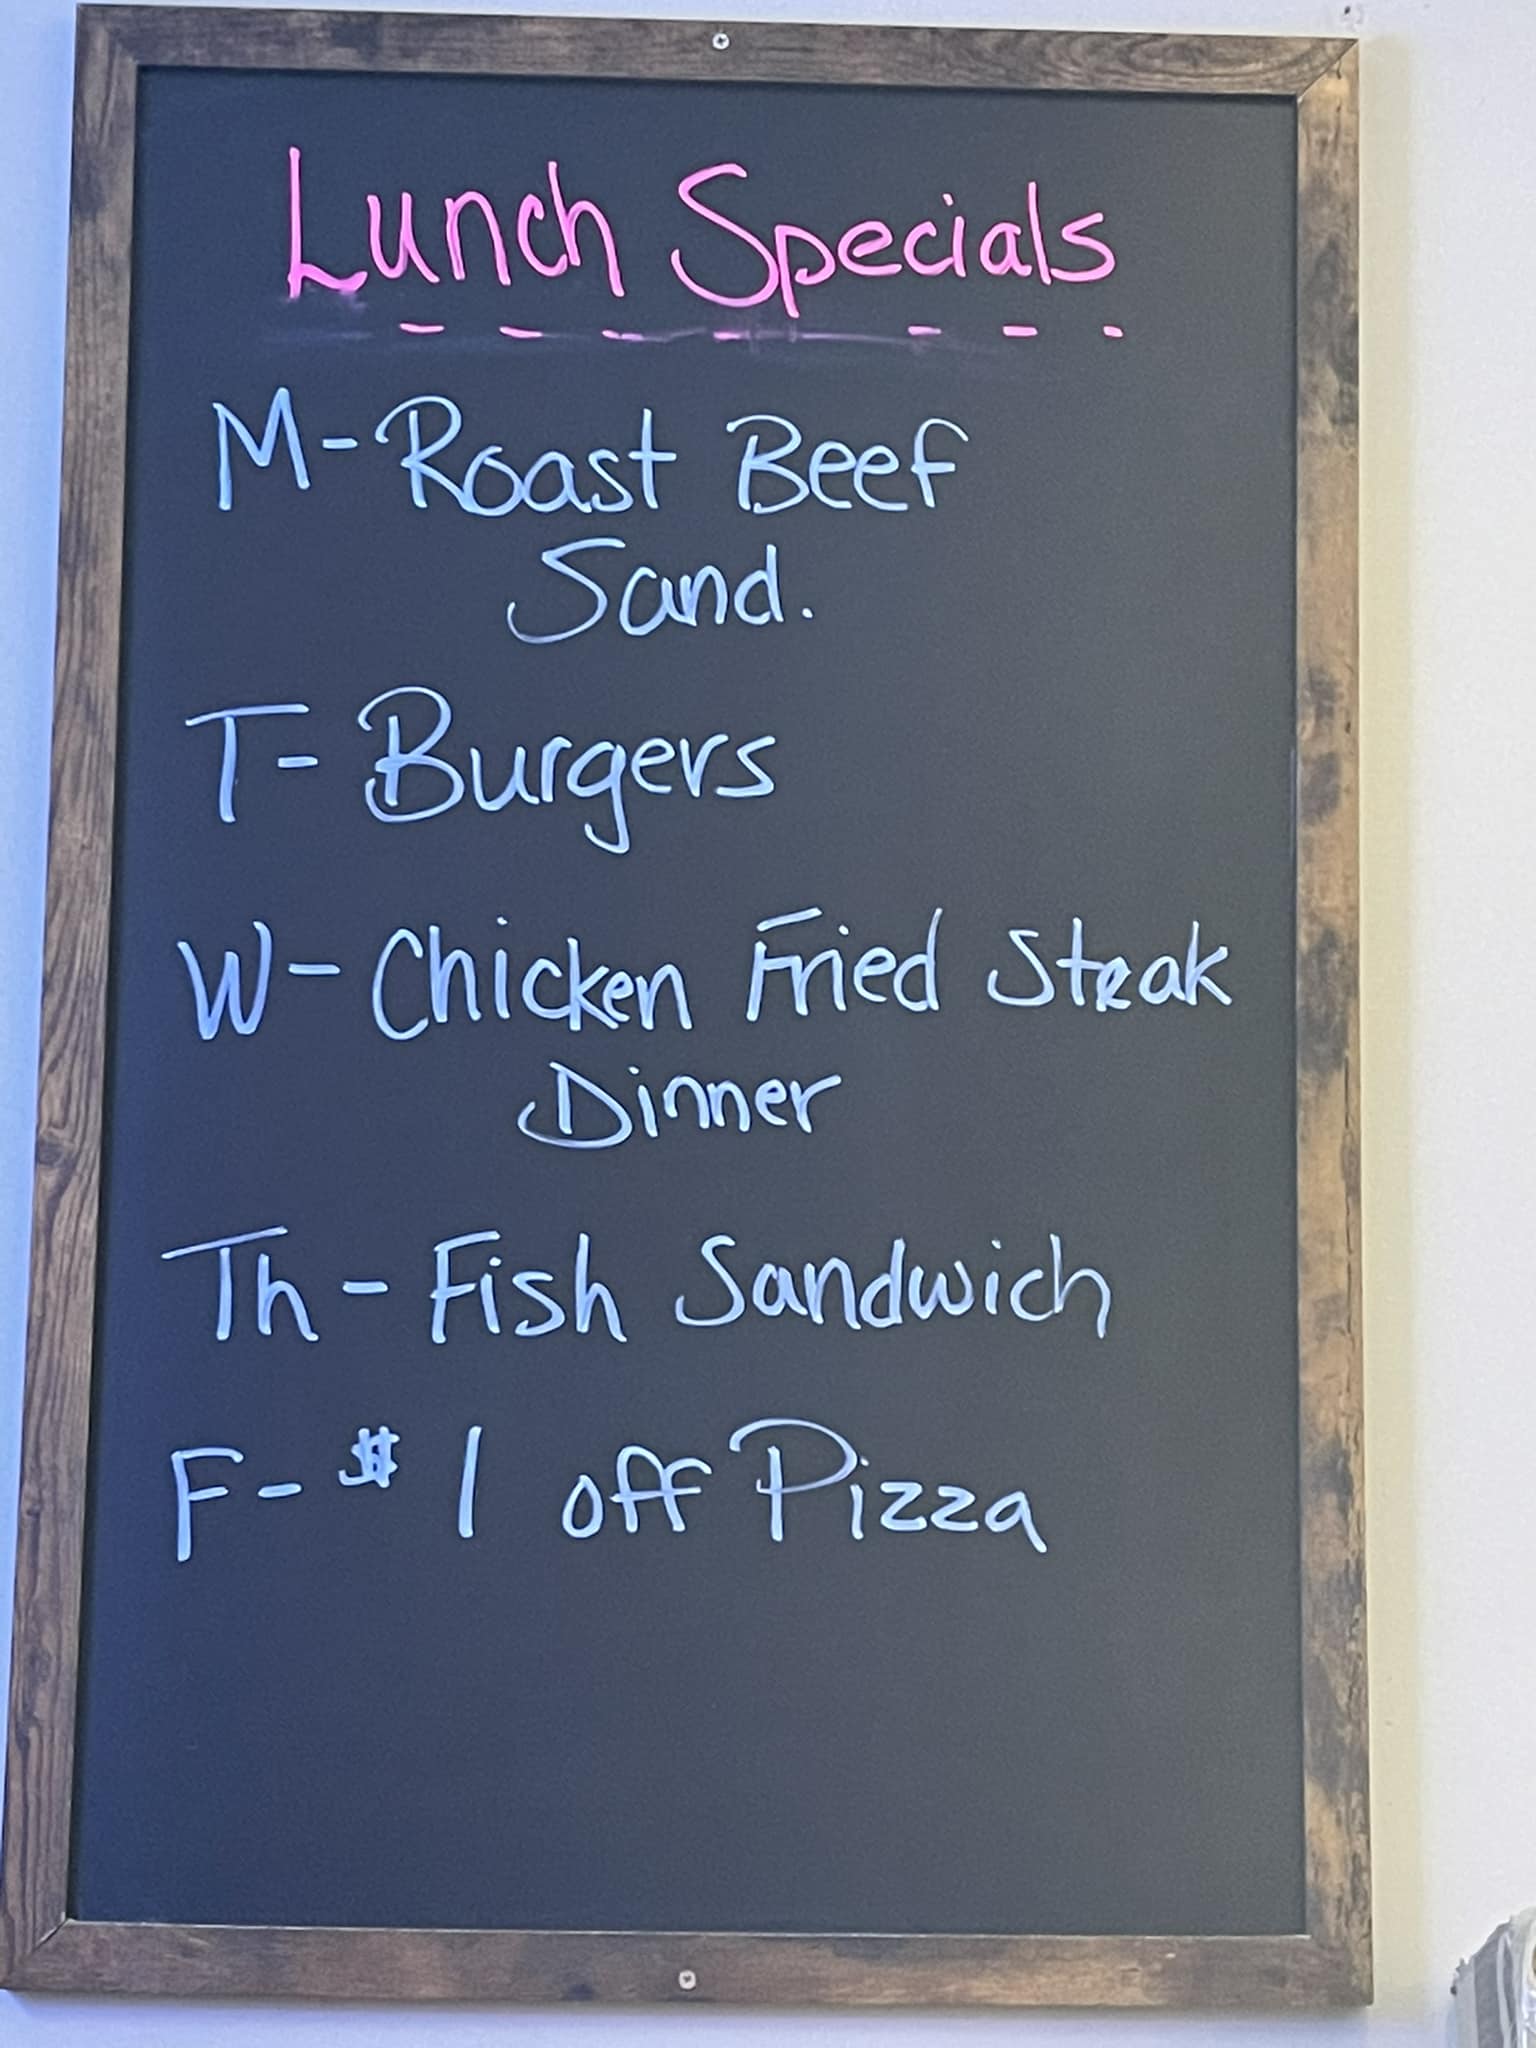 Lunch Specials
M- Roast Beef
Sand.
T- Burgers
W- Chicken Fried Steak
Dinner
Th - Fish Sandwich
F- $1 off Pizza